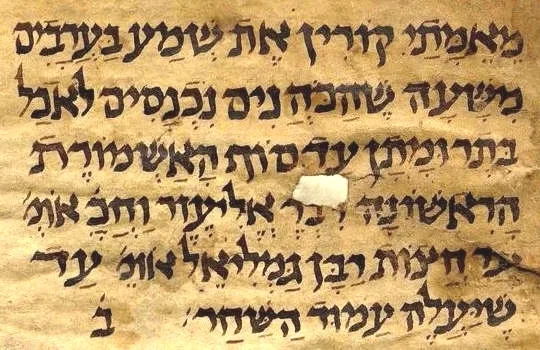 מאמתי קורין את שמע בערבים
משעה שהכהנים נכנסים לאכל
בתרומתן עד סוף האשמורת
הראשונה דבר' אליעזר וחכ' אומ'
עד חצות רבן גמליאל אומ' עד
שיעלה עמוד השחר' ב